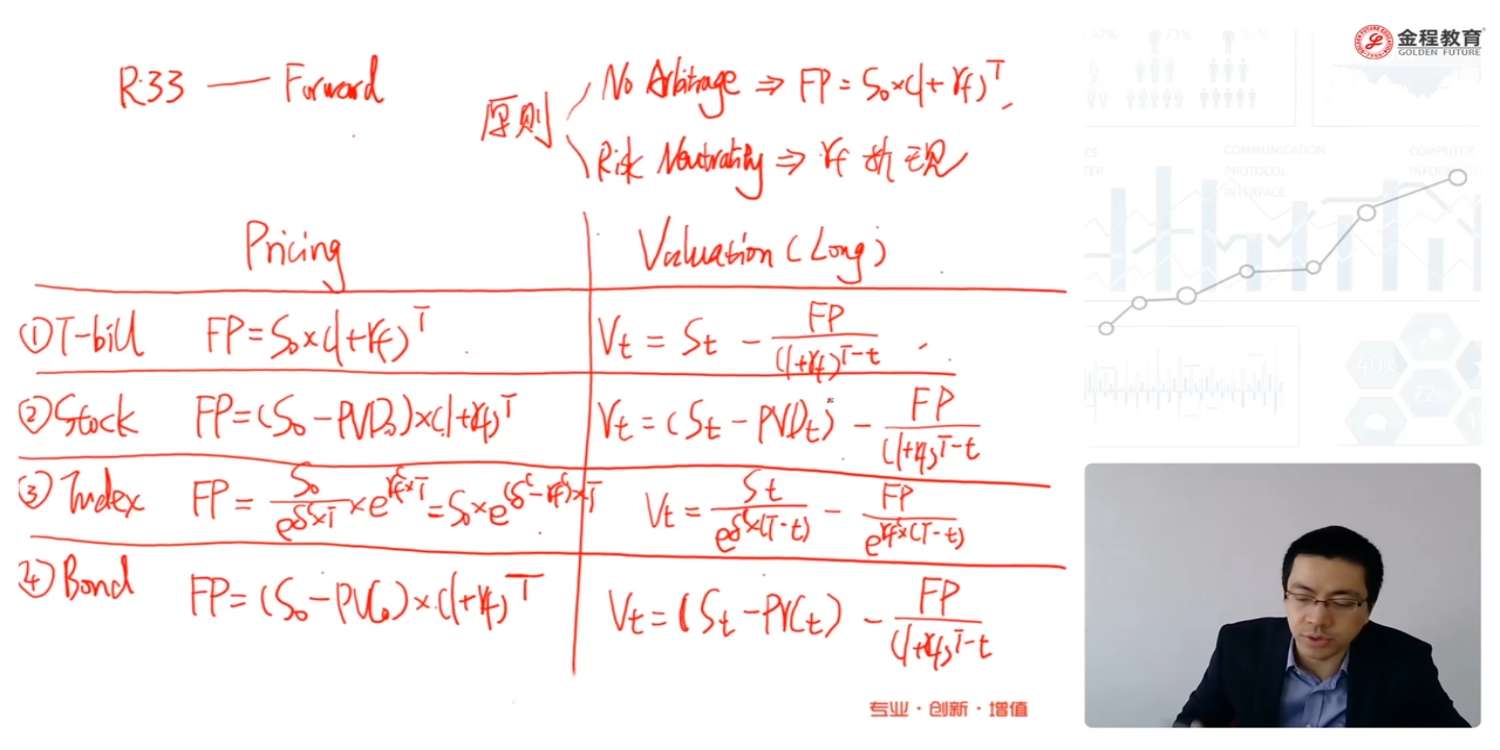 金程教育
GOLDEN FUTURE
R33 — Forward
原则
No Arbitrage ⇒ FP = S₀×(1+rf)^T
Risk Neutrality ⇒ rf 折现
Pricing
Valuation (Long)
① T-bill FP = S₀×(1+rf)^T Vt = St − FP/(1+rf)^(T−t)
② Stock FP = (S₀ − PVD₀)×(1+rf)^T Vt = (St − PVDt) − FP/(1+rf)^(T−t)
③ Index FP = S₀/e^(δ^c×T) × e^(rf^c×T) = S₀×e^(δ^c−rf^c)×T Vt = St/e^(δ^c×(T−t)) − FP/e^(rf^c×(T−t))
④ Bond FP = (S₀ − PVC₀)×(1+rf)^T Vt = (St − PVCt) − FP/(1+rf)^(T−t)
专业·创新·增值
COMMUNICATION
PROTOCOL
INTERFACE